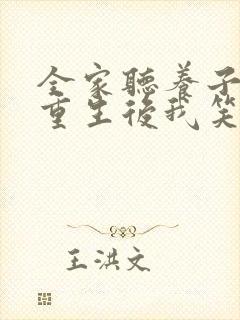 全家聽養子
重生後我笑
王洪文